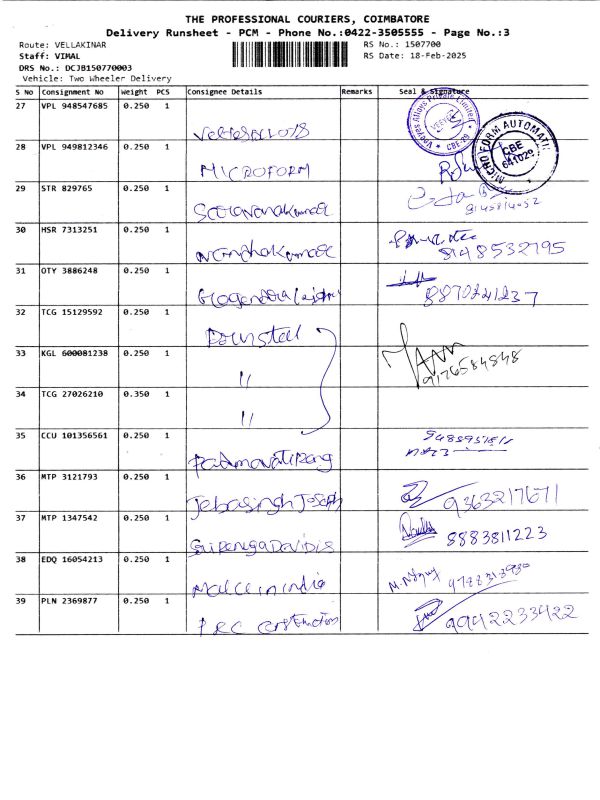 THE PROFESSIONAL COURIERS, COIMBATORE
Delivery Runsheet - PCM - Phone No.:0422-3505555 - Page No.:3
Route: VELLAKINAR RS No.: 1507700
Staff: VIMAL RS Date: 18-Feb-2025
DRS No.: DCJB150770003
Vehicle: Two Wheeler Delivery
S No Consignment No Weight PCS Consignee Details Remarks Seal & Signature
27 VPL 948547685 0.250 1
28 VPL 949812346 0.250 1 MICROFORM
MICRO FORM AUTOMATI CBE 641029
CBE-29
29 STR 829765 0.250 1
30 HSR 7313251 0.250 1 8148532795
31 OTY 3886248 0.250 1 8870241237
32 TCG 15129592 0.250 1
33 KGL 600081238 0.250 1 " 9176584848
34 TCG 27026210 0.350 1 "
35 CCU 101356561 0.250 1
36 MTP 3121793 0.250 1 Jebasingh Joseph 9363217671
37 MTP 1347542 0.250 1 8883811223
38 EDQ 16054213 0.250 1 in india
39 PLN 2369877 0.250 1 9942233422